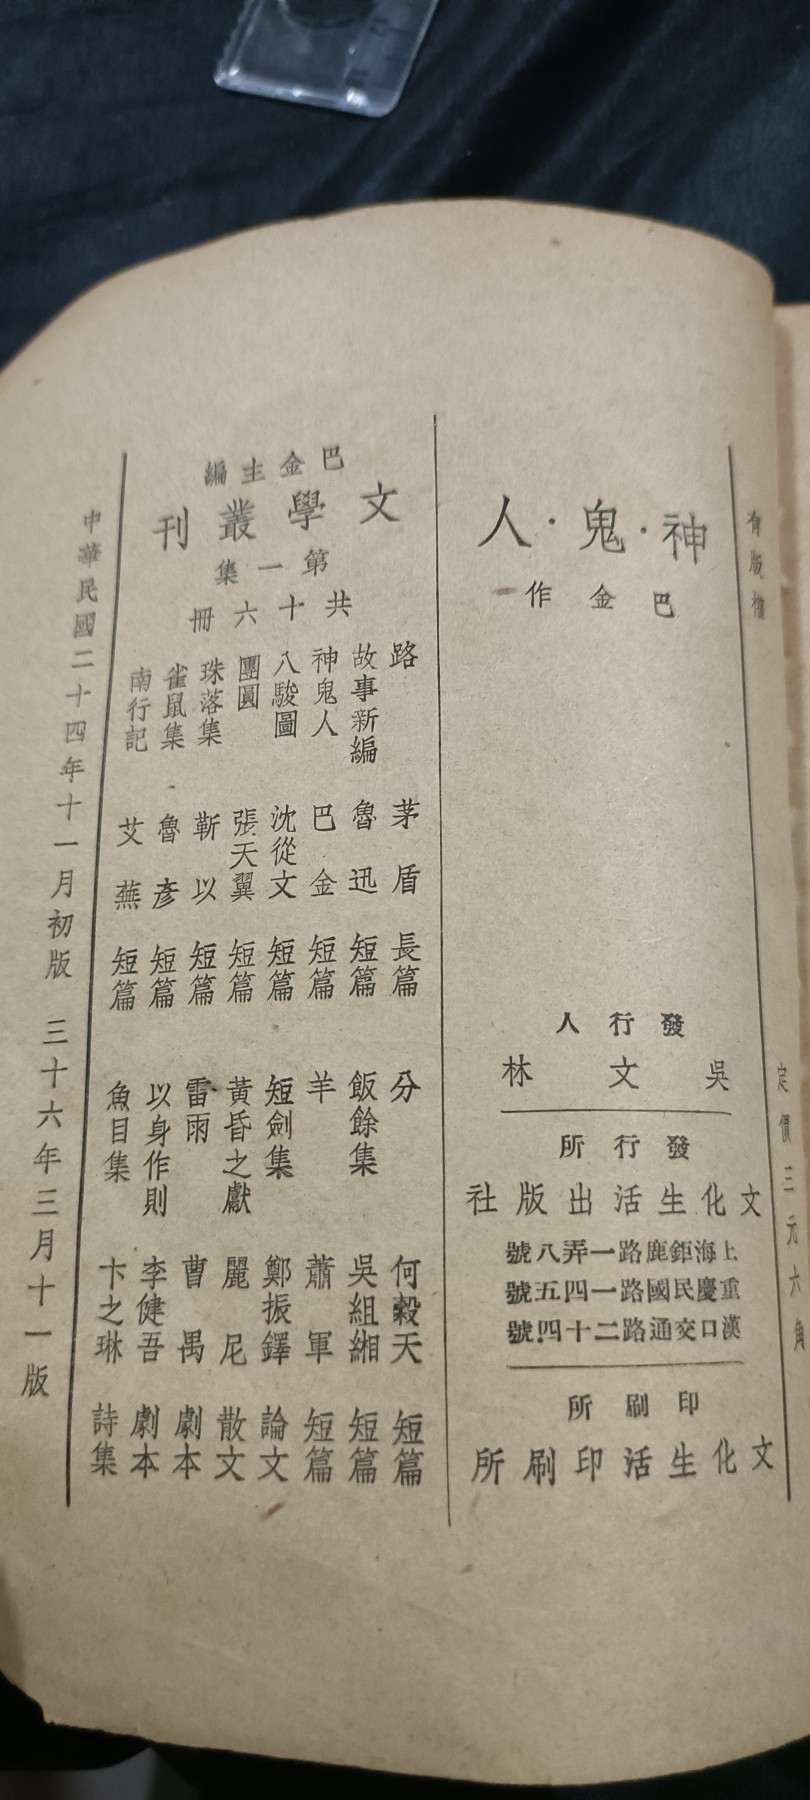 有版權
定價三元六角
神·鬼·人
巴金作
發行人
吳文林
發行所
文化生活出版社
上海鉅鹿路一弄八號
重慶民國路一四五號
漢口交通路二十四號
印刷所
文化生活印刷所
巴金主編
文學叢刊
第一集
共十六冊
路 茅盾 長篇
故事新編 魯迅 短篇
神鬼人 巴金 短篇
八駿圖 沈從文 短篇
團圓 張天翼 短篇
珠落集 靳以 短篇
雀鼠集 魯彥 短篇
南行記 艾蕪 短篇
分 何穀天 短篇
飯餘集 吳組緗 短篇
羊 蕭軍 短篇
短劍集 鄭振鐸 論文
黃昏之獻 麗尼 散文
雷雨 曹禺 劇本
以身作則 李健吾 劇本
魚目集 卞之琳 詩集
中華民國二十四年十一月初版 三十六年三月十一版